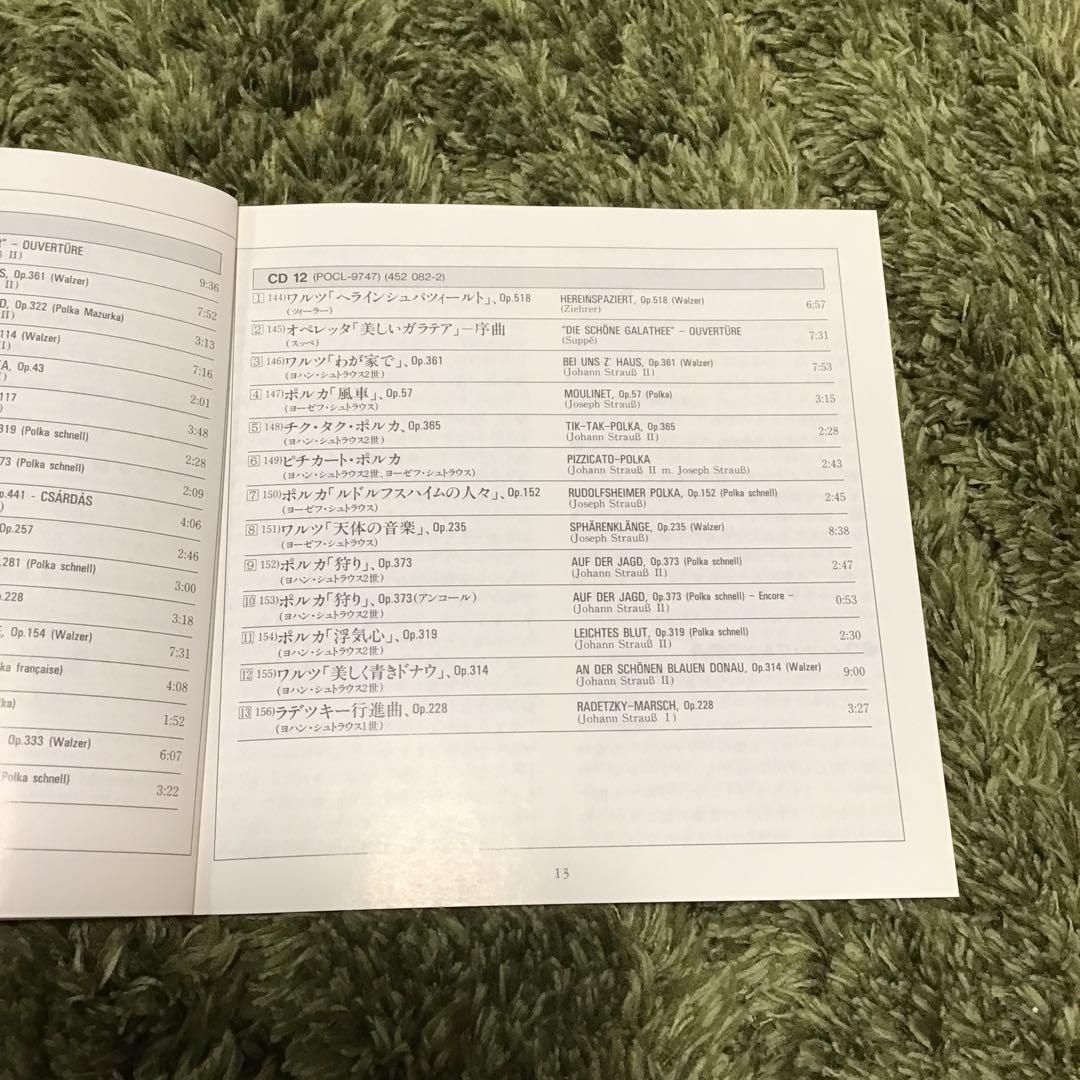 " – OUVERTÜRE
II)
S, Op.361 (Walzer)
II)
9:36
D, Op.322 (Polka Mazurka)
II)
7:52
114 (Walzer)
I)
3:13
A, Op.43
7:16
117
2:01
319 (Polka schnell)
3:48
73 (Polka schnell)
2:28
2:09
p.441 - CSÁRDÁS
4:06
Op.257
2:46
.281 (Polka schnell)
3:00
.228
3:18
E, Op.154 (Walzer)
7:31
ka française)
4:08
ka)
1:52
Op.333 (Walzer)
6:07
Polka schnell)
3:22
CD 12 (POCL-9747) (452 082-2)
1 144)ワルツ「ヘラインシュパツィールト」、Op.518 HEREINSPAZIERT, Op.518 (Walzer) 6:57
(ツィーラー) (Ziehrer)
2 145)オペレッタ「美しいガラテア」―序曲 "DIE SCHÖNE GALATHEE" – OUVERTÜRE 7:31
(スッペ) (Suppé)
3 146)ワルツ「わが家で」、Op.361 BEI UNS Z' HAUS, Op.361 (Walzer) 7:53
(ヨハン・シュトラウス2世) (Johann Strauß II)
4 147)ポルカ「風車」、Op.57 MOULINET, Op.57 (Polka) 3:15
(ヨーゼフ・シュトラウス) (Joseph Strauß)
5 148)チク・タク・ポルカ、Op.365 TIK-TAK-POLKA, Op.365 2:28
(ヨハン・シュトラウス2世) (Johann Strauß II)
6 149)ピチカート・ポルカ PIZZICATO-POLKA 2:43
(ヨハン・シュトラウス2世、ヨーゼフ・シュトラウス) (Johann Strauß II m. Joseph Strauß)
7 150)ポルカ「ルドルフスハイムの人々」、Op.152 RUDOLFSHEIMER POLKA, Op.152 (Polka schnell) 2:45
(ヨーゼフ・シュトラウス) (Joseph Strauß)
8 151)ワルツ「天体の音楽」、Op.235 SPHÄRENKLÄNGE, Op.235 (Walzer) 8:38
(ヨーゼフ・シュトラウス) (Joseph Strauß)
9 152)ポルカ「狩り」、Op.373 AUF DER JAGD, Op.373 (Polka schnell) 2:47
(ヨハン・シュトラウス2世) (Johann Strauß II)
10 153)ポルカ「狩り」、Op.373(アンコール) AUF DER JAGD, Op.373 (Polka schnell) – Encore – 0:53
(ヨハン・シュトラウス2世) (Johann Strauß II)
11 154)ポルカ「浮気心」、Op.319 LEICHTES BLUT, Op.319 (Polka schnell) 2:30
(ヨハン・シュトラウス2世) (Johann Strauß II)
12 155)ワルツ「美しく青きドナウ」、Op.314 AN DER SCHÖNEN BLAUEN DONAU, Op.314 (Walzer) 9:00
(ヨハン・シュトラウス2世) (Johann Strauß II)
13 156)ラデツキー行進曲、Op.228 RADETZKY-MARSCH, Op.228 3:27
(ヨハン・シュトラウス1世) (Johann Strauß I)
13